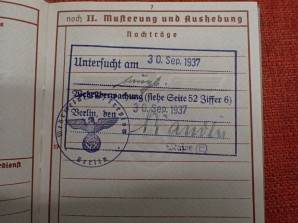 7
noch II. Musterung und Aushebung
Nachträge
Untersucht am 30. Sep. 1937
Wehrüberwachung (siehe Seite 52 Ziffer 6)
Berlin, den 30. Sep. 1937
Berlin
dienst